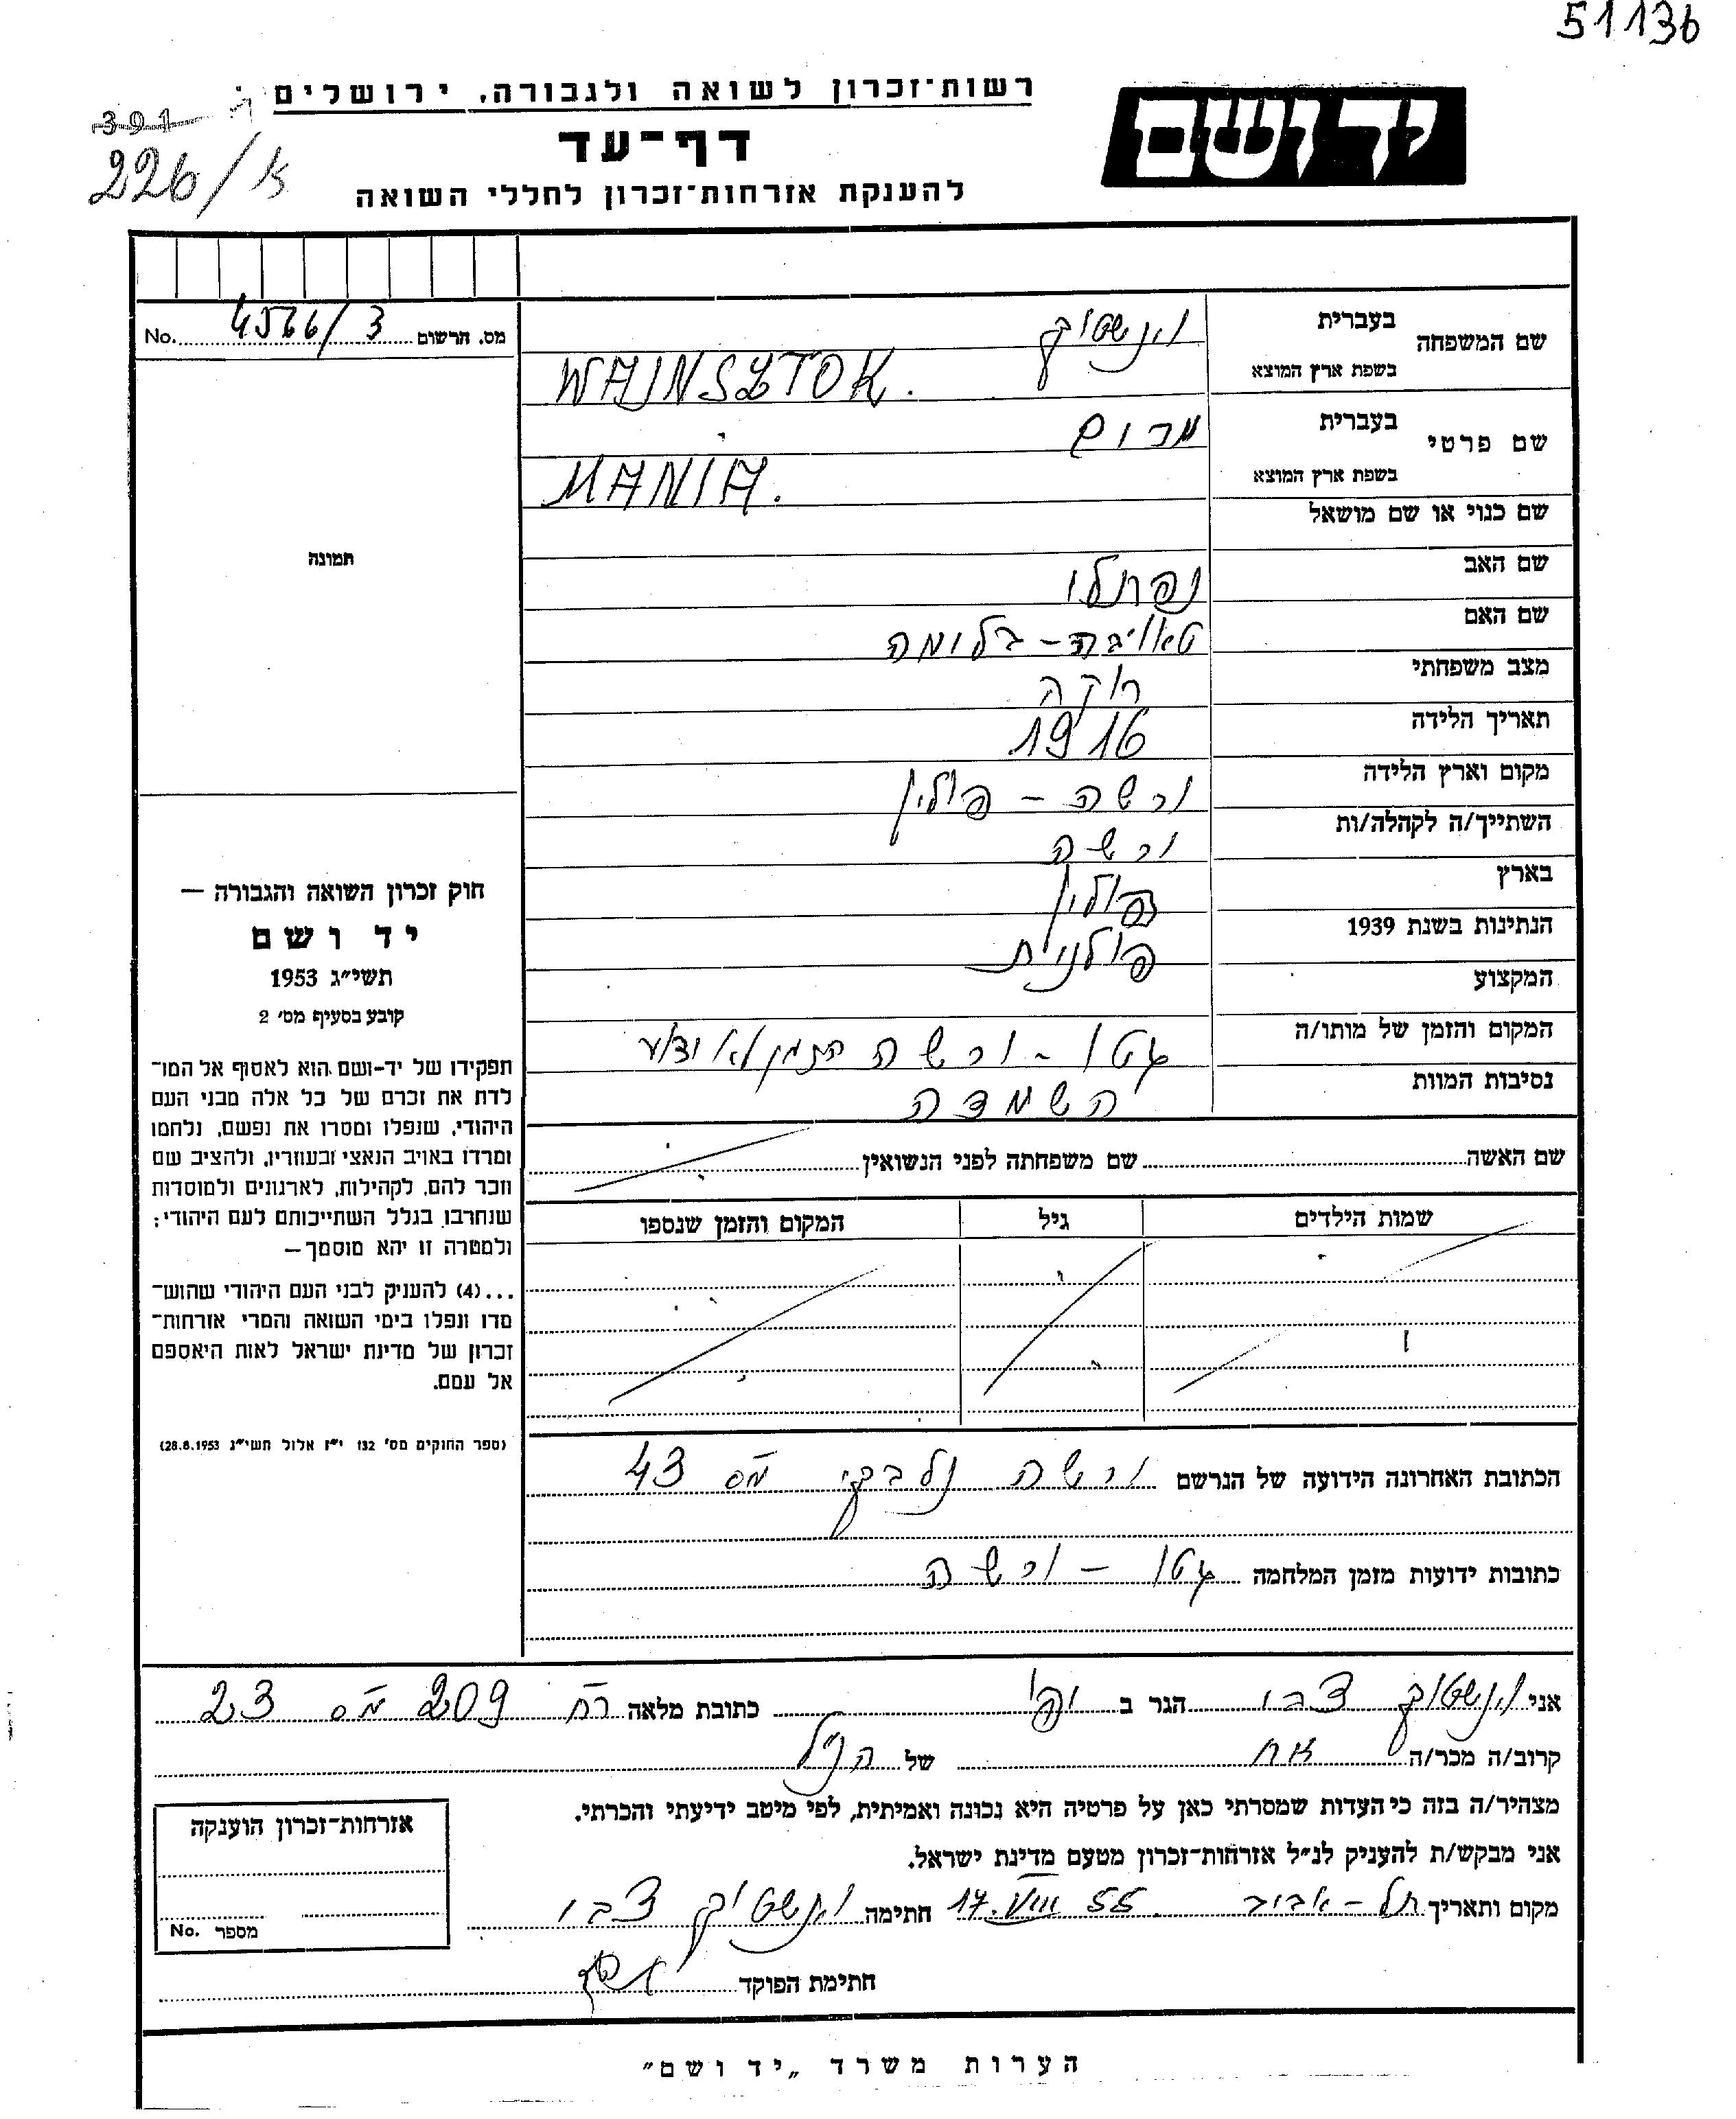 51136
רשות־זכרון לשואה ולגבורה, ירושלים
יד ושם
391
דף־עד
226/א
להענקת אזרחות־זכרון לחללי השואה
שם המשפחה בעברית וינשטוק
בשפת ארץ המוצא WAJNSZTOK.
שם פרטי בעברית מרים
בשפת ארץ המוצא MANIA.
שם כנוי או שם מושאל
שם האב נפתלי
שם האם בלומה
מצב משפחתי רוקה
תאריך הלידה 1916
מקום וארץ הלידה ורשה - פולין
השתייך/ה לקהלה/ות ורשה
בארץ פולין
הנתינות בשנת 1939 פולנית
המקצוע
המקום והזמן של מותו/ה גטו - ורשה הזמן לא ידוע
נסיבות המוות השמדה
שם האשה שם משפחתה לפני הנשואין
שמות הילדים גיל המקום והזמן שנספו
הכתובת האחרונה הידועה של הנרשם ורשה נלבקי מס 43
כתובות ידועות מזמן המלחמה גטו - ורשה
מס. הרשום 4566/3 No.
תמונה
חוק זכרון השואה והגבורה —
יד ושם
תשי״ג 1953
קובע בסעיף מס׳ 2
תפקידו של יד-ושם הוא לאסוף אל המו־
לדת את זכרם של כל אלה מבני העם
היהודי, שנפלו ומסרו את נפשם, נלחמו
ומרדו באויב הנאצי ובעוזריו, ולהציב שם
וזכר להם, לקהילות, לארגונים ולמוסדות
שנחרבו בגלל השתייכותם לעם היהודי;
ולמטרה זו יהא מוסמך—
...(4) להעניק לבני העם היהודי שהוש־
מדו ונפלו בימי השואה והמרי אזרחות־
זכרון של מדינת ישראל לאות היאספם
אל עמם.
(ספר החוקים מס׳ 132 י״ז אלול תשי״ג 28.8.1953)
אני וינשטוק צבי הגר ב יפו כתובת מלאה רח 209 מס 23
קרוב/ה מכר/ה אח של הנ״ל
מצהיר/ה בזה כי העדות שמסרתי כאן על פרטיה היא נכונה ואמיתית, לפי מיטב ידיעתי והכרתי.
אני מבקש/ת להעניק לנ״ל אזרחות־זכרון מטעם מדינת ישראל.
מקום ותאריך תל-אביב 17.VIII 55 חתימה וינשטוק צבי
חתימת הפוקד
אזרחות־זכרון הוענקה
מספר No.
הערות משרד „יד ושם״